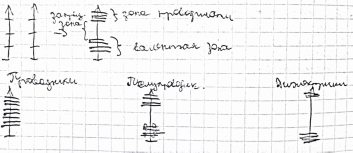 запрещ. зона } зона проводимости
} валентная зона
Проводники Полупроводник. Диэлектрики